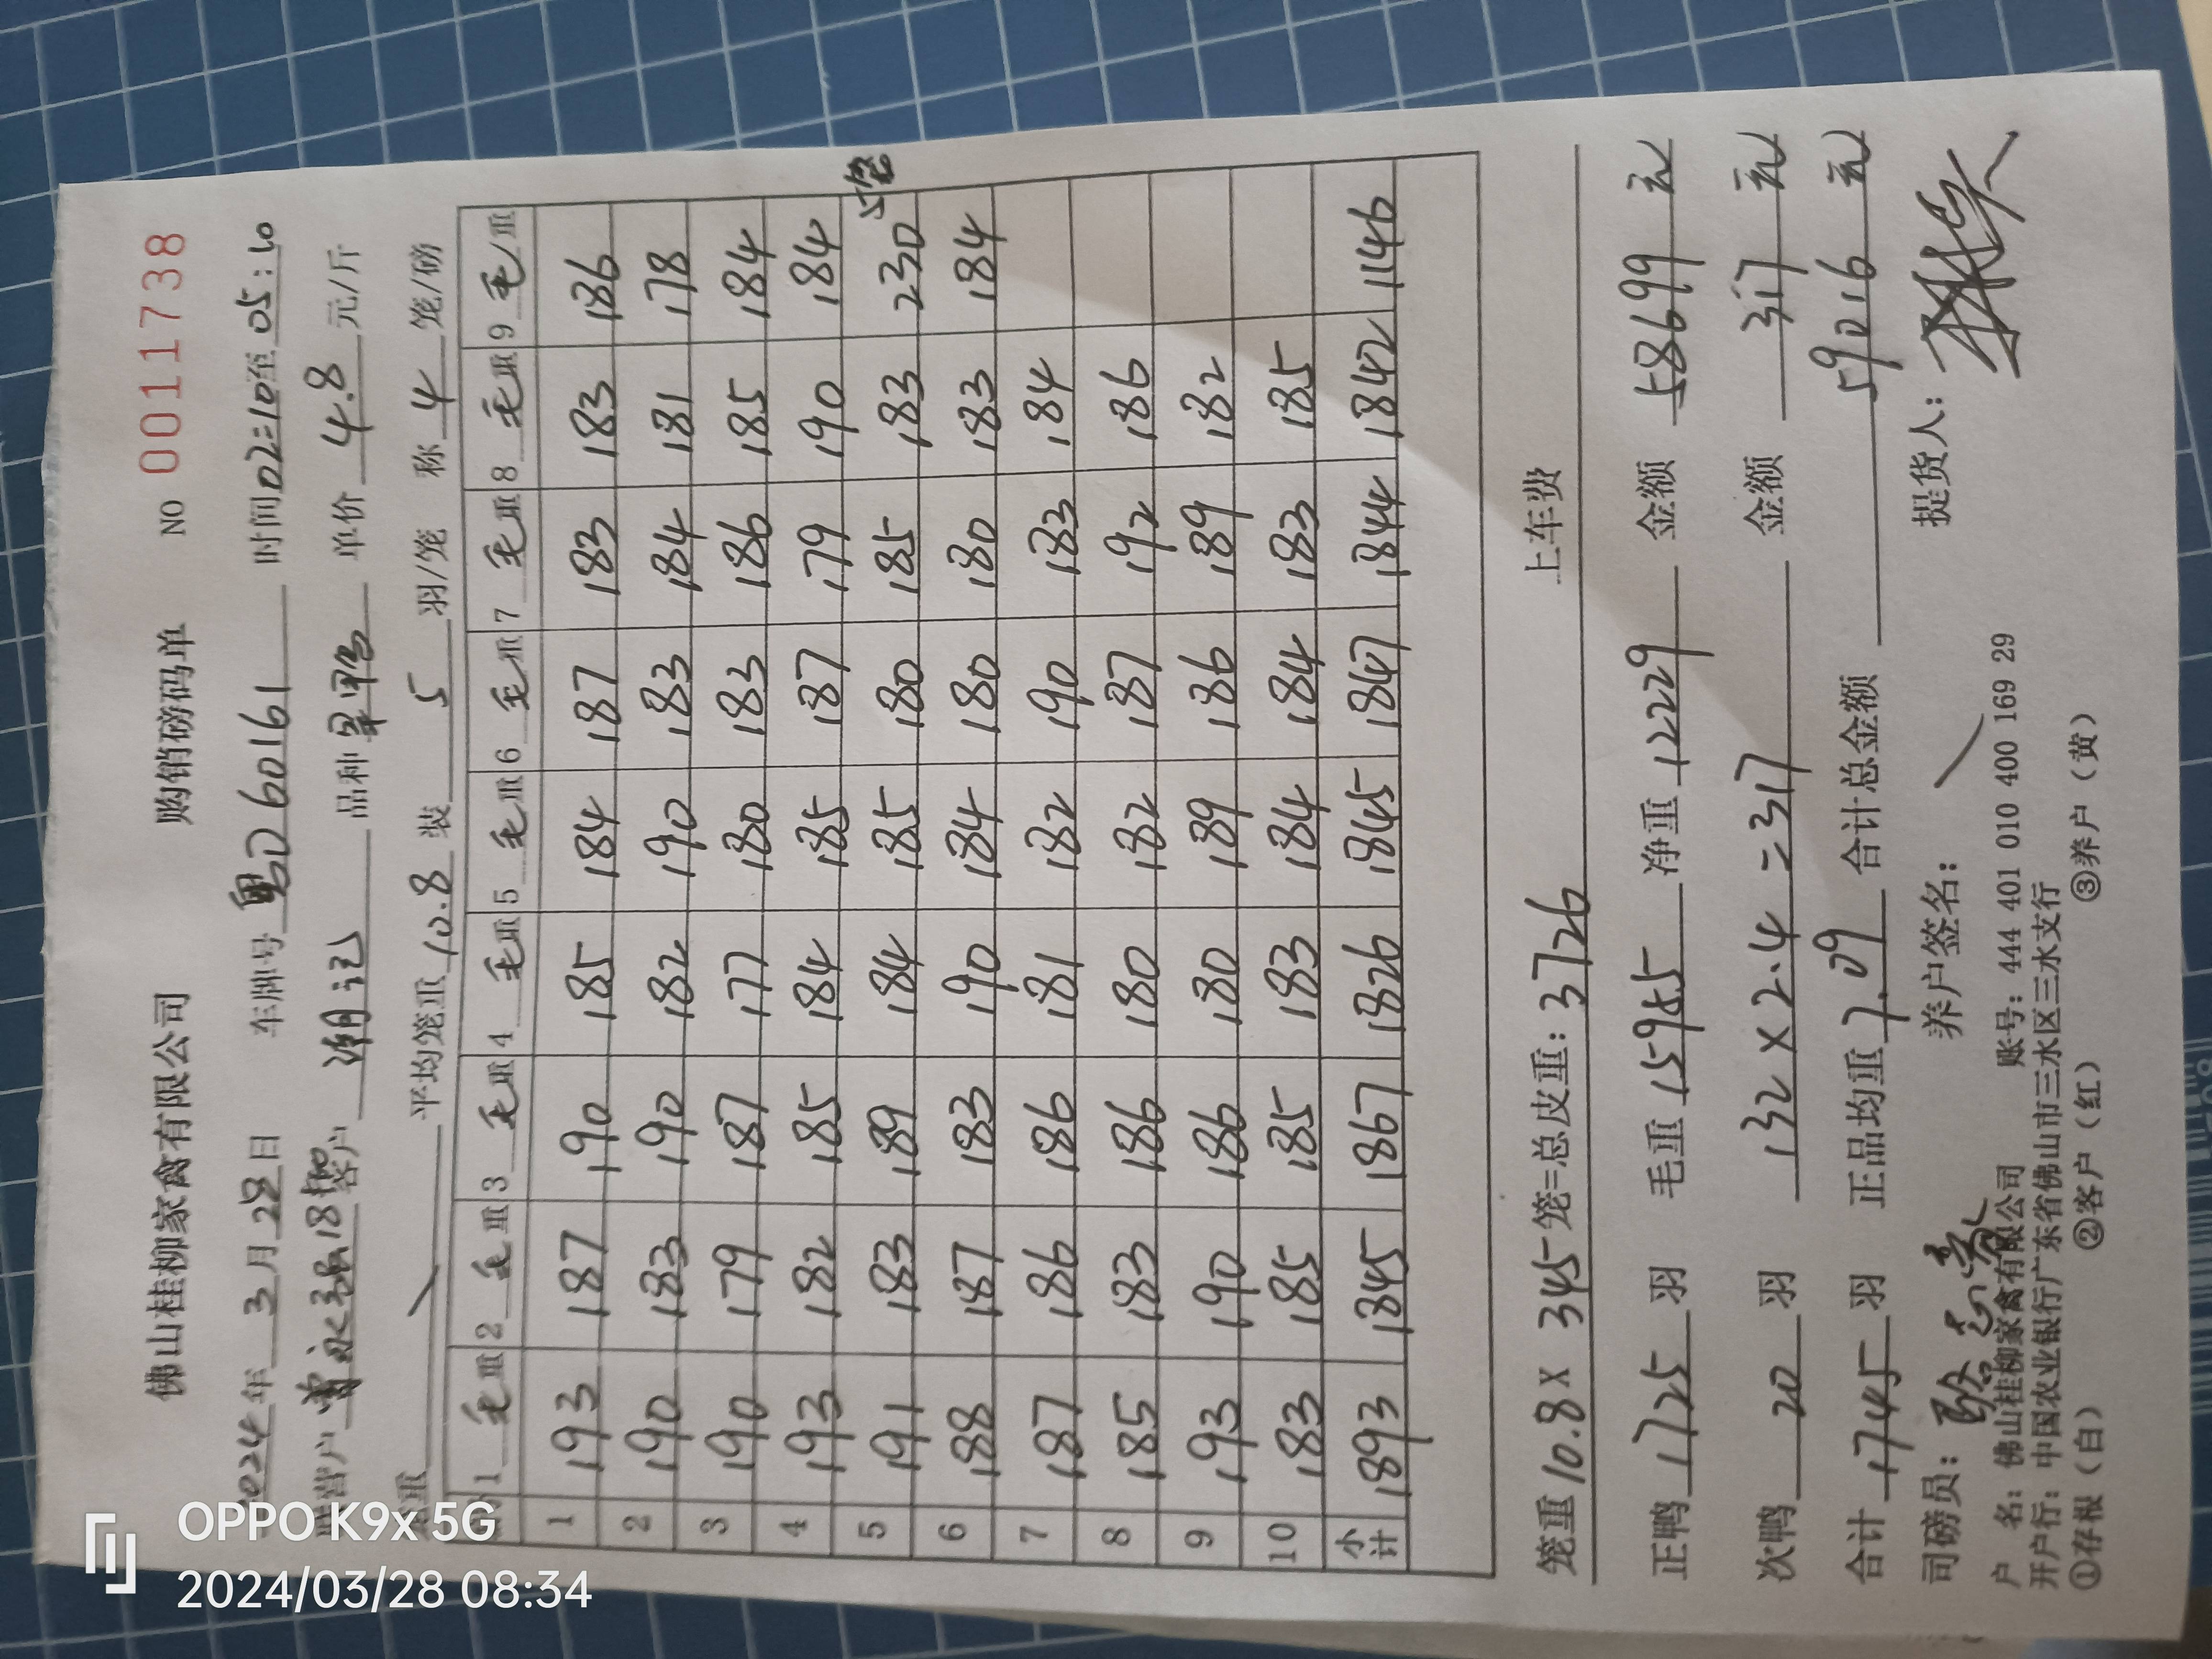 佛山桂柳家禽有限公司 购销磅码单 NO 0011738
2024年 3月 28日 车牌号 粤D60161 时间 02:10至05:10
营户 曾永强18棚 客户 潮记 品种 单价 4.8 元/斤
总重 平均笼重 10.8 装 5 羽/笼 称 4 笼/磅
1 毛重 2 毛重 3 毛重 4 毛重 5 毛重 6 毛重 7 毛重 8 毛重 9 毛/重
1 193 187 190 185 184 187 183 183 186
2 190 183 190 182 190 183 184 181 178
3 190 179 187 177 180 183 186 185 184
4 193 182 185 184 185 187 179 190 184
5 191 183 189 184 185 180 185 183 230 5笼
6 188 187 183 190 184 180 180 183 184
7 187 186 186 181 182 190 183 184
8 185 183 186 180 182 187 192 186
9 193 190 186 180 189 186 189 182
10 183 185 185 183 184 184 183 185
小计 1893 1845 1867 1826 1845 1847 1844 1842 1146
笼重 10.8 X 345 笼=总皮重: 3726 上车费
正鸭 1725 羽 毛重 15955 净重 12229 金额 58699 元
次鸭 20 羽 132 X 2.4 = 317 金额 317 元
合计 1745 羽 正品均重 7.09 合计总金额 59016 元
司磅员: 养户签名: 提货人:
户 名: 佛山桂柳家禽有限公司 账号: 444 401 010 400 169 29
开户行: 中国农业银行广东省佛山市三水区三水支行
①存根（白） ②客户（红） ③养户（黄）
OPPO K9x 5G
2024/03/28 08:34